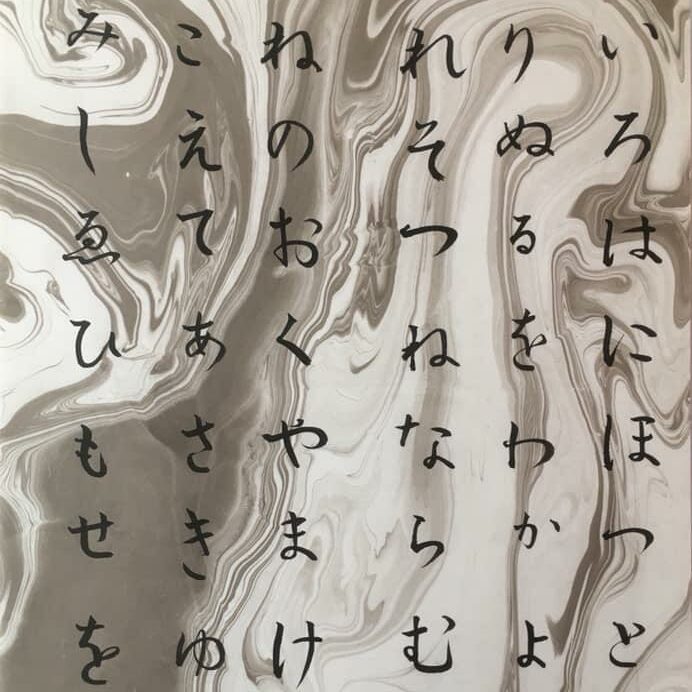 いろはにほつと
りぬるをわかよ
れそつねならむ
ねのおくやまけ
こえてあさきゆ
みしゑひもせを